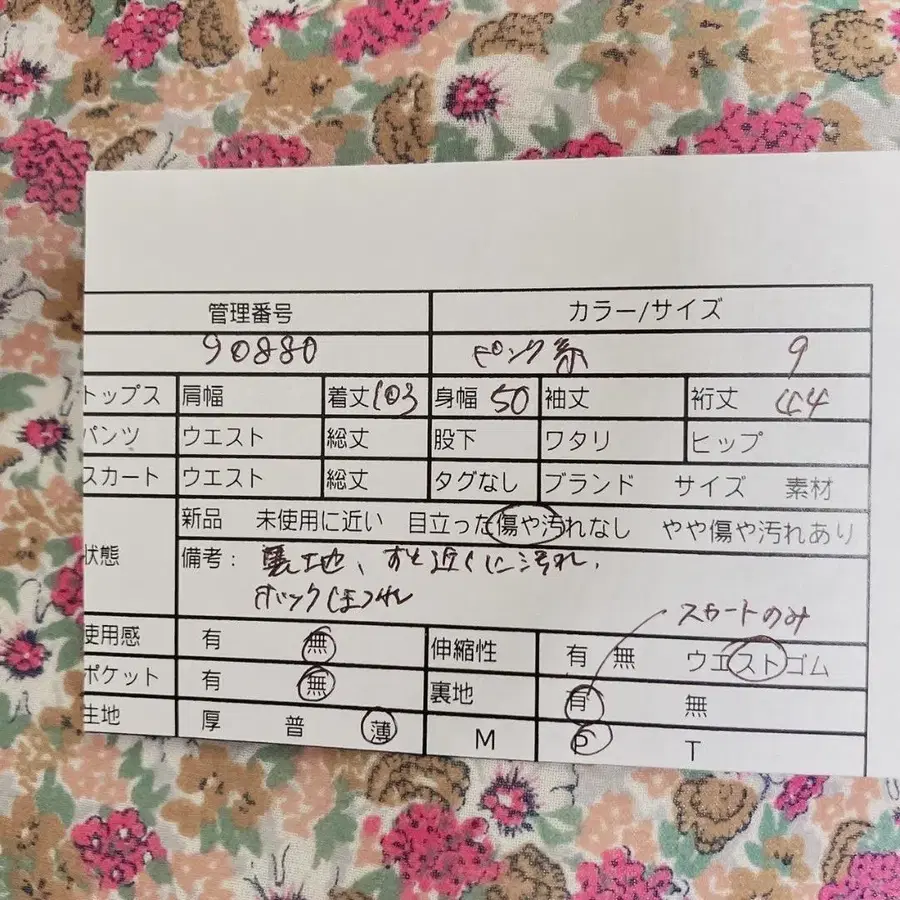 管理番号 カラー/サイズ
90880 ピンク系 9
トップス 肩幅 着丈 103 身幅 50 袖丈 裄丈 44
パンツ ウエスト 総丈 股下 ワタリ ヒップ
スカート ウエスト 総丈 タグなし ブランド サイズ 素材
新品 未使用に近い 目立った傷や汚れなし やや傷や汚れあり
状態 備考: 裏地、すそ近くに汚れ、
ホックほつれ
スカートのみ
使用感 有 無 伸縮性 有 無 ウエストゴム
ポケット 有 無 裏地 有 無
生地 厚 普 薄 M P T